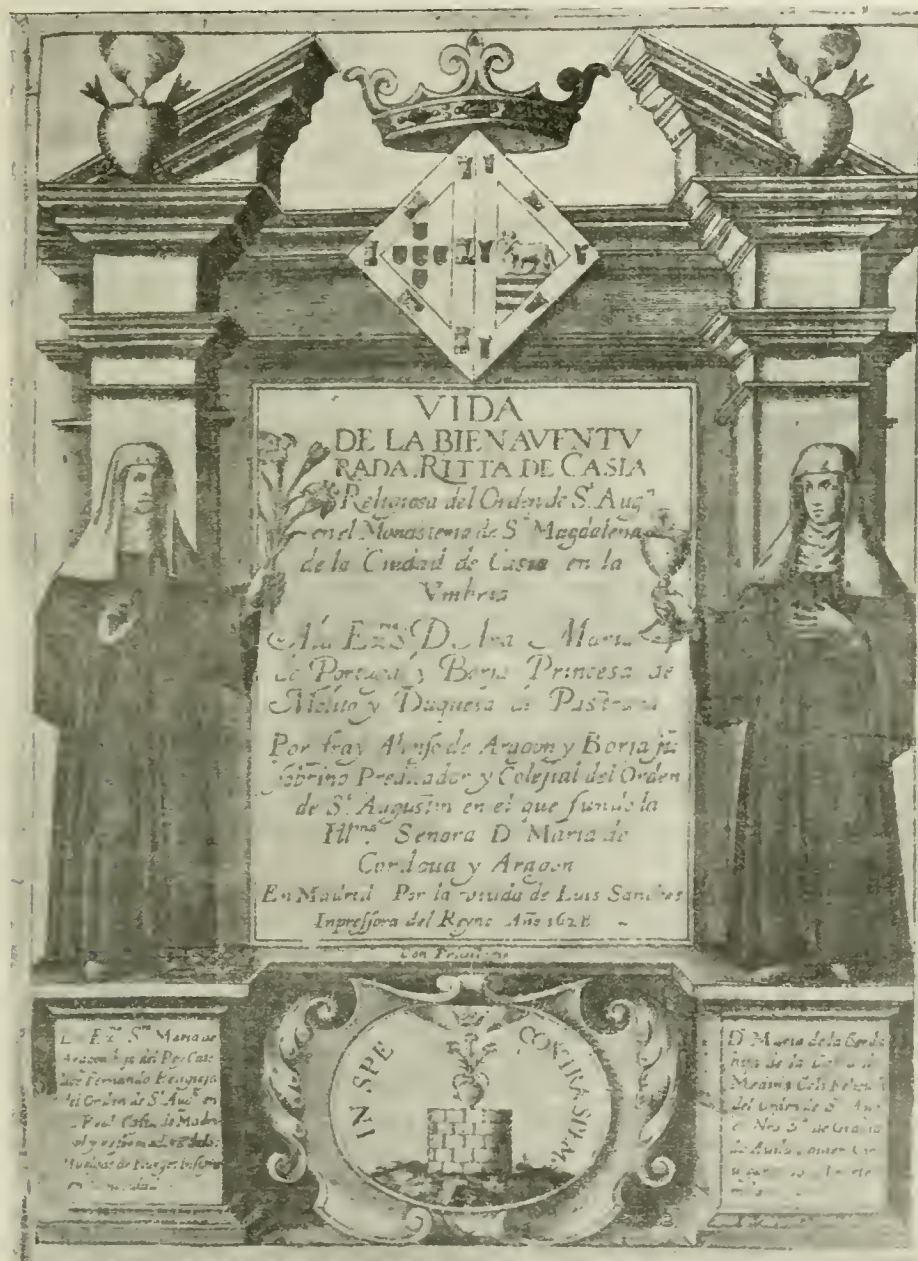 VIDA
DE LA BIENAVENTV
RADA. RITTA DE CASIA
Religiosa del Orden de S. Augn
en el Monasterio de Sta Magdalena
de la Ciudad de Casia en la
Vmbria
Ala Exma Sa D. Ana Maria
de Portugal y Borja Princesa de
Melito y Duquesa de Pastrana
Por fray Alonso de Aragon y Borja su
sobrino Predicador y Colejial del Orden
de St Augustin en el que fundo la
Illma Senora D Maria de
Cordoua y Aragon
En Madrid Por la viuda de Luis Sanches
Inpressora del Reyno Año 1628
Con Priuilegio
IN SPE CONTRA SPEM
Maria de
Aragon hija del Rey Cato
Fernando Religiosa
del Orden de St Augn en
Real de Madri
y reformadora
Huelgas de Burgos
D Maria de la Cerda
hija de la de
Medina Celi Religiosa
del Orden de St Au
Nra Sa de Gracia
de Auila